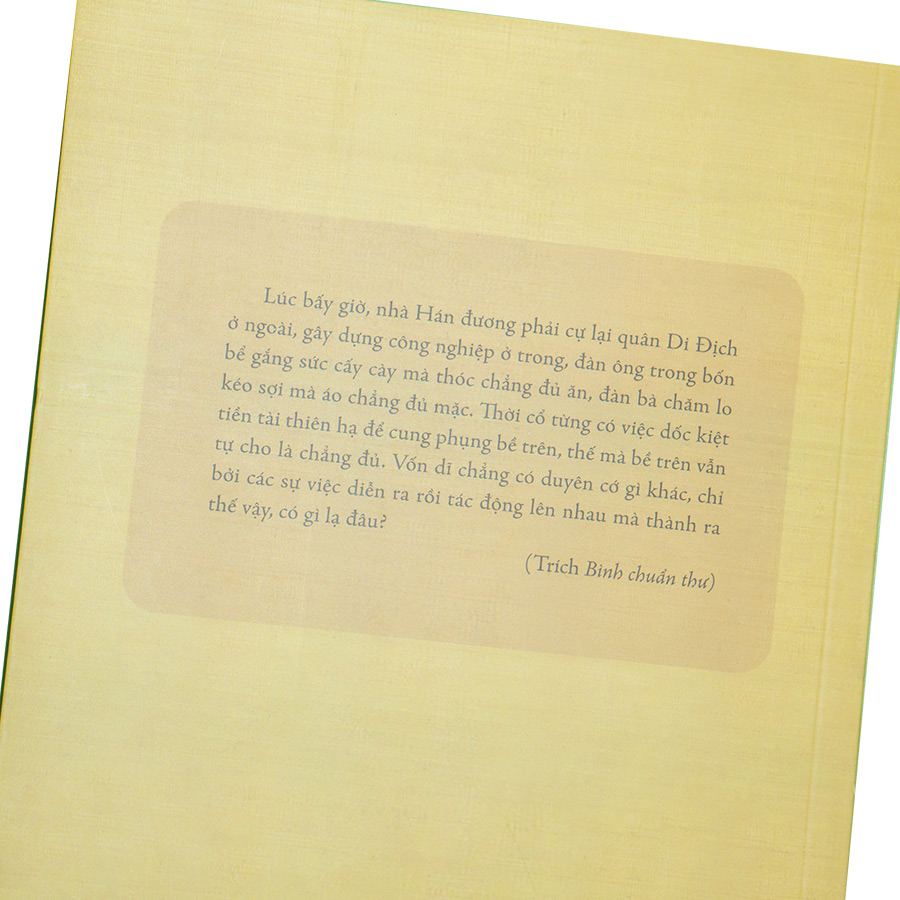 Lúc bấy giờ, nhà Hán đương phải cự lại quân Di Địch
ở ngoài, gây dựng công nghiệp ở trong, đàn ông trong bốn
bể gắng sức cấy cày mà thóc chẳng đủ ăn, đàn bà chăm lo
kéo sợi mà áo chẳng đủ mặc. Thời cổ từng có việc dốc kiệt
tiền tài thiên hạ để cung phụng bề trên, thế mà bề trên vẫn
tự cho là chẳng đủ. Vốn dĩ chẳng có duyên cớ gì khác, chỉ
bởi các sự việc diễn ra rồi tác động lên nhau mà thành ra
thế vậy, có gì lạ đâu?
(Trích Bình chuẩn thư)